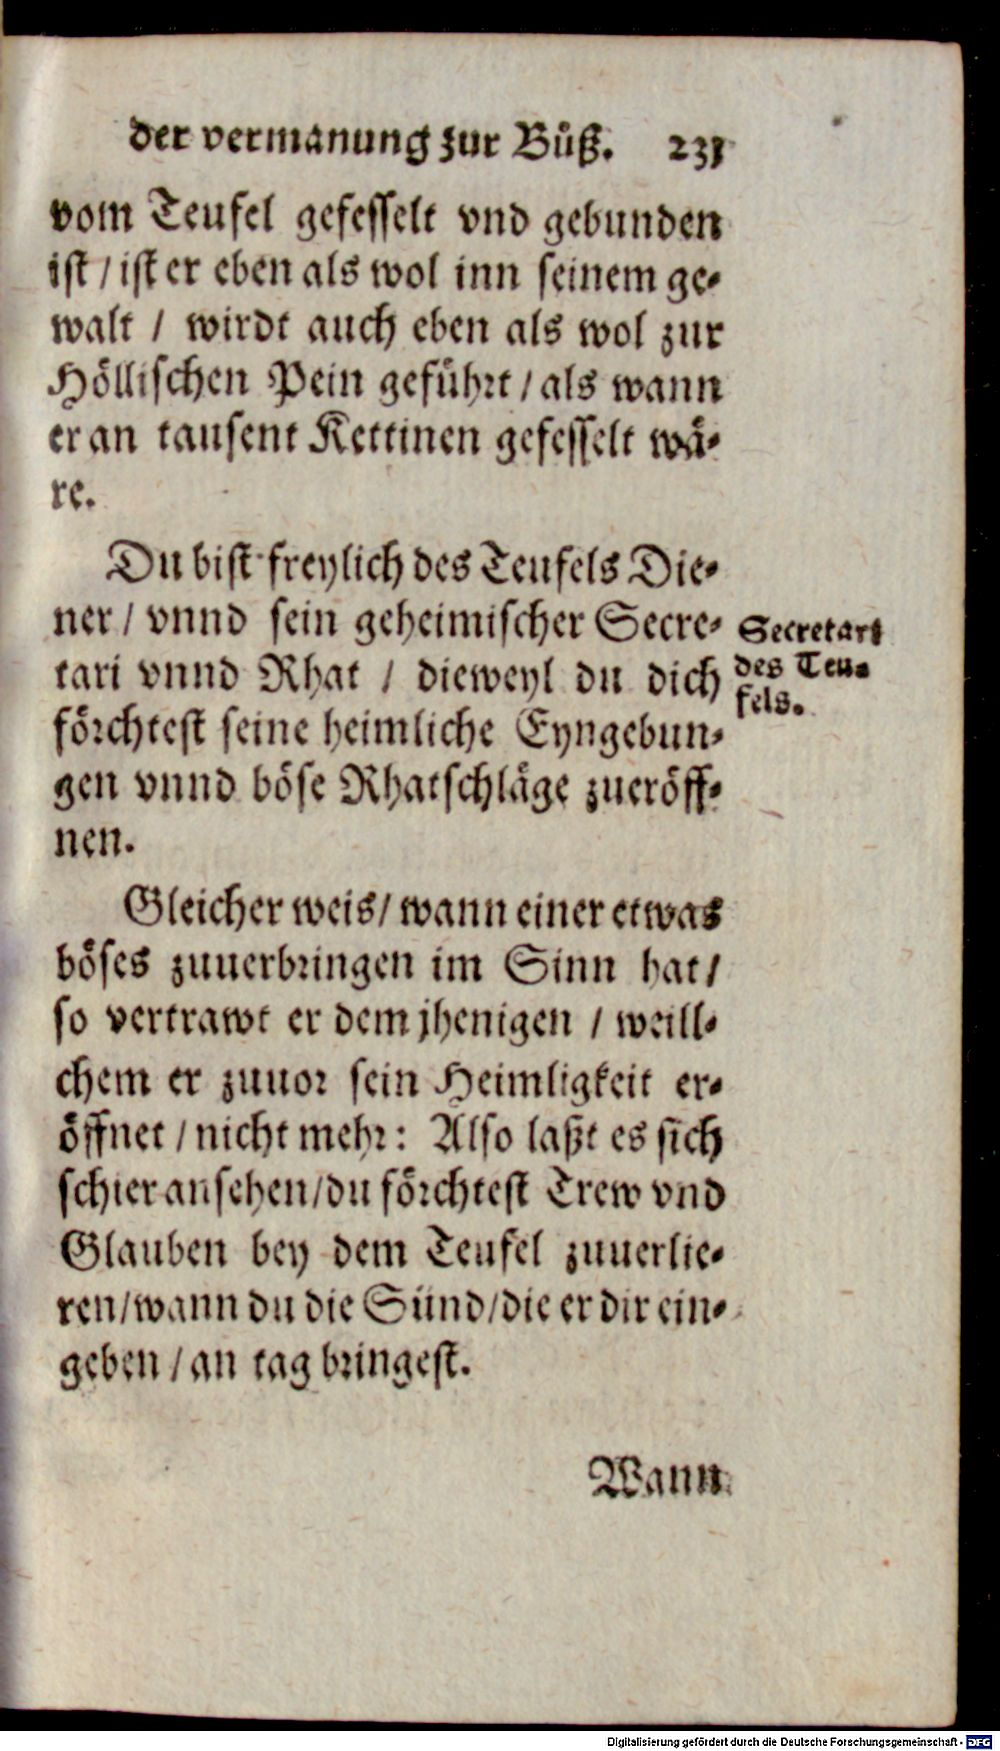 der vermanung zur Bůß. 231
vom Teufel gefesselt vnd gebunden
ist / ist er eben als wol inn seinem ge-
walt / wirdt auch eben als wol zur
Höllischen Pein geführt / als wann
er an tausent Kettinen gefesselt wä-
re.
Du bist freylich des Teufels Die-
ner / vnnd sein geheimischer Secre-
tari vnnd Rhat / dieweyl du dich
förchtest seine heimliche Eyngebun-
gen vnnd böse Rhatschläge zueröff-
nen.
Secretari
des Teu-
fels.
Gleicher weis / wann einer etwas
böses zuuerbringen im Sinn hat /
so vertrawt er dem jhenigen / weill-
chem er zuuor sein Heimligkeit er-
öffnet / nicht mehr: Also laßt es sich
schier ansehen / du förchtest Trew vnd
Glauben bey dem Teufel zuuerlie-
ren / wann du die Sünd / die er dir ein-
geben / an tag bringest.
Wann
Digitalisierung gefördert durch die Deutsche Forschungsgemeinschaft - DFG